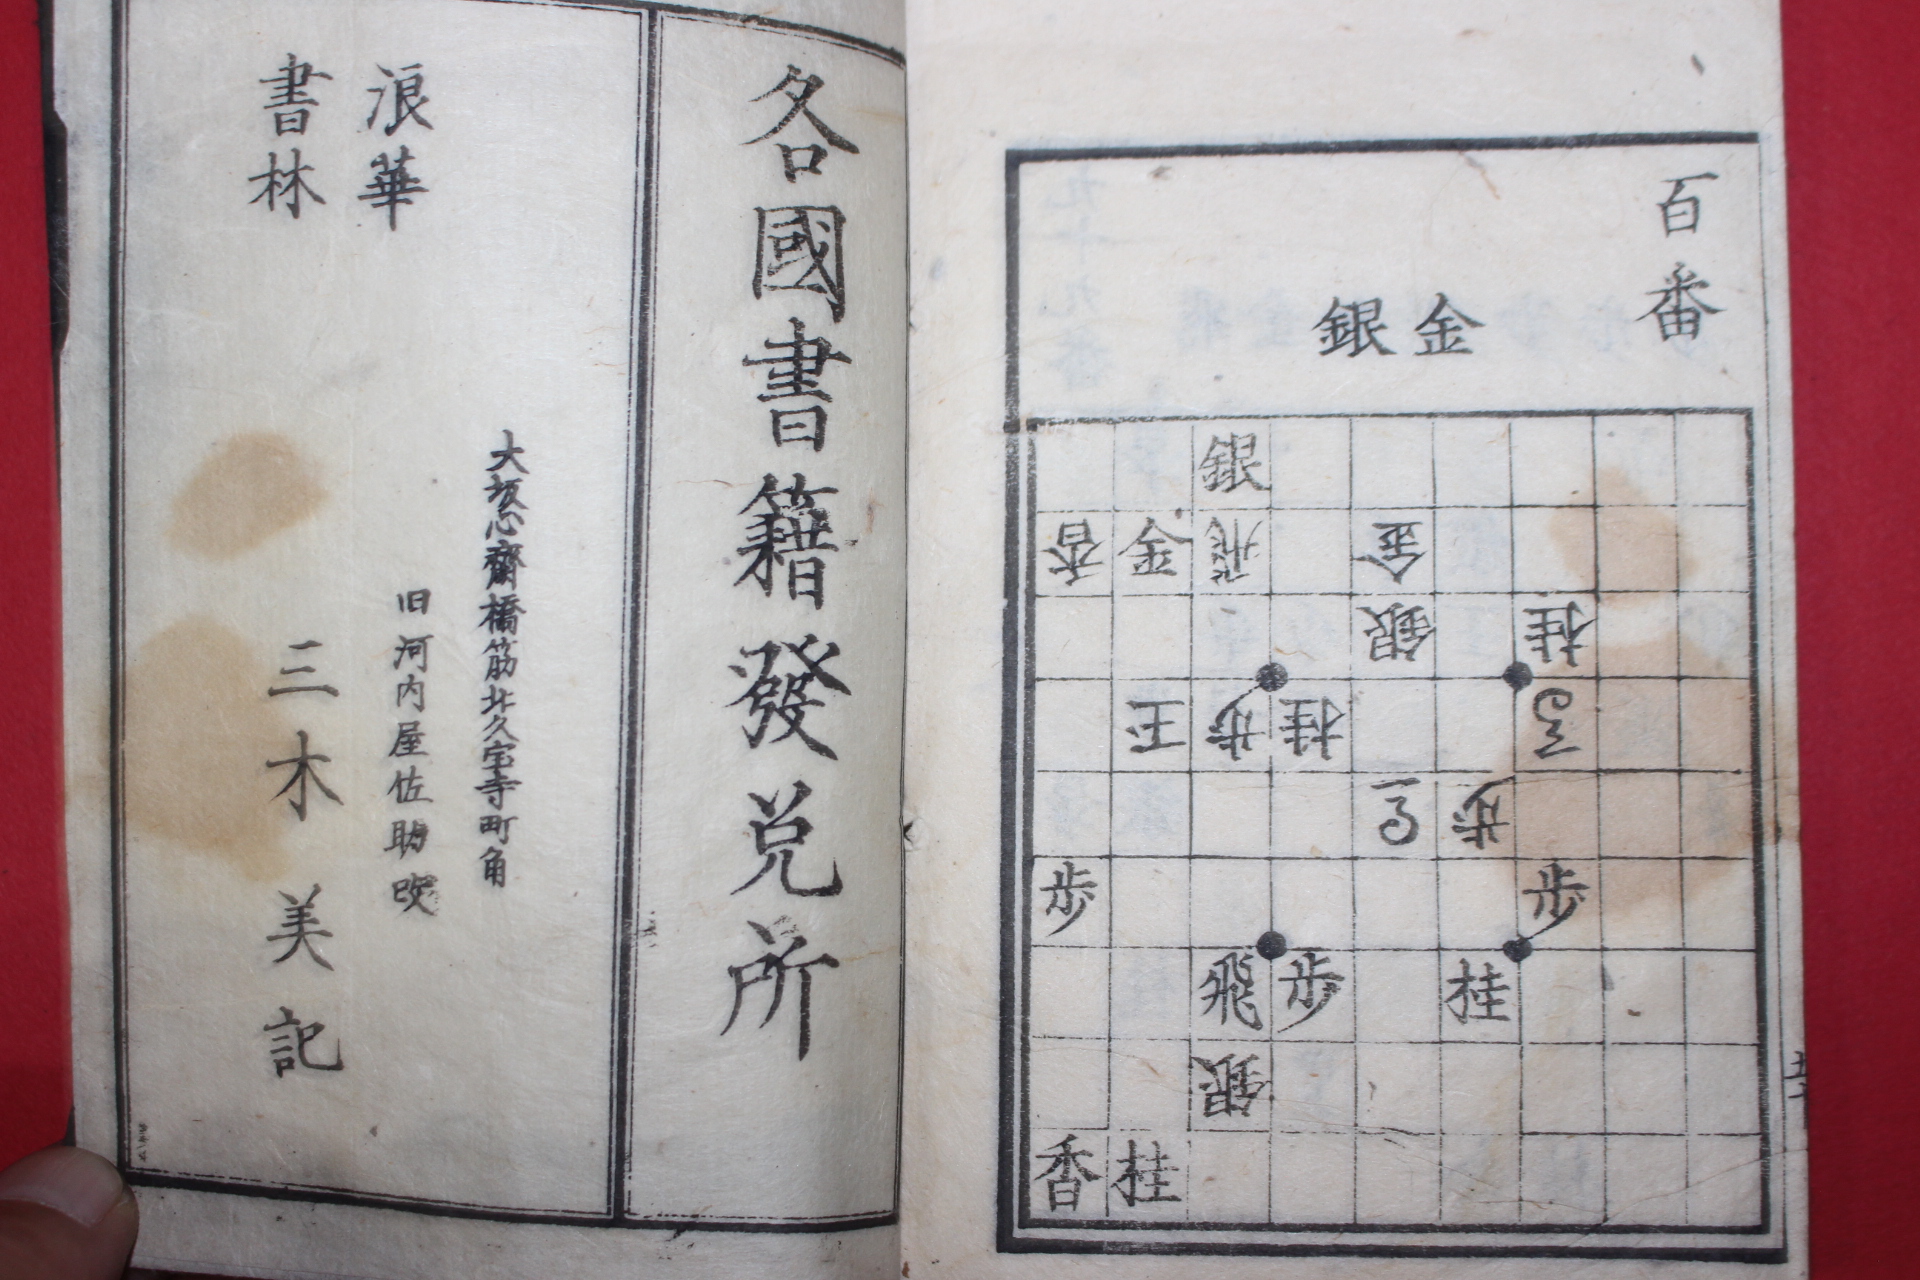 百番
金銀
銀
香金飛金
銀桂
玉歩桂馬
馬歩
歩歩
飛歩桂
銀
香桂
各國書籍發兌所
大坂心齋橋筋北久宝寺町角
旧河内屋佐助改
浪華
書林
三木美記